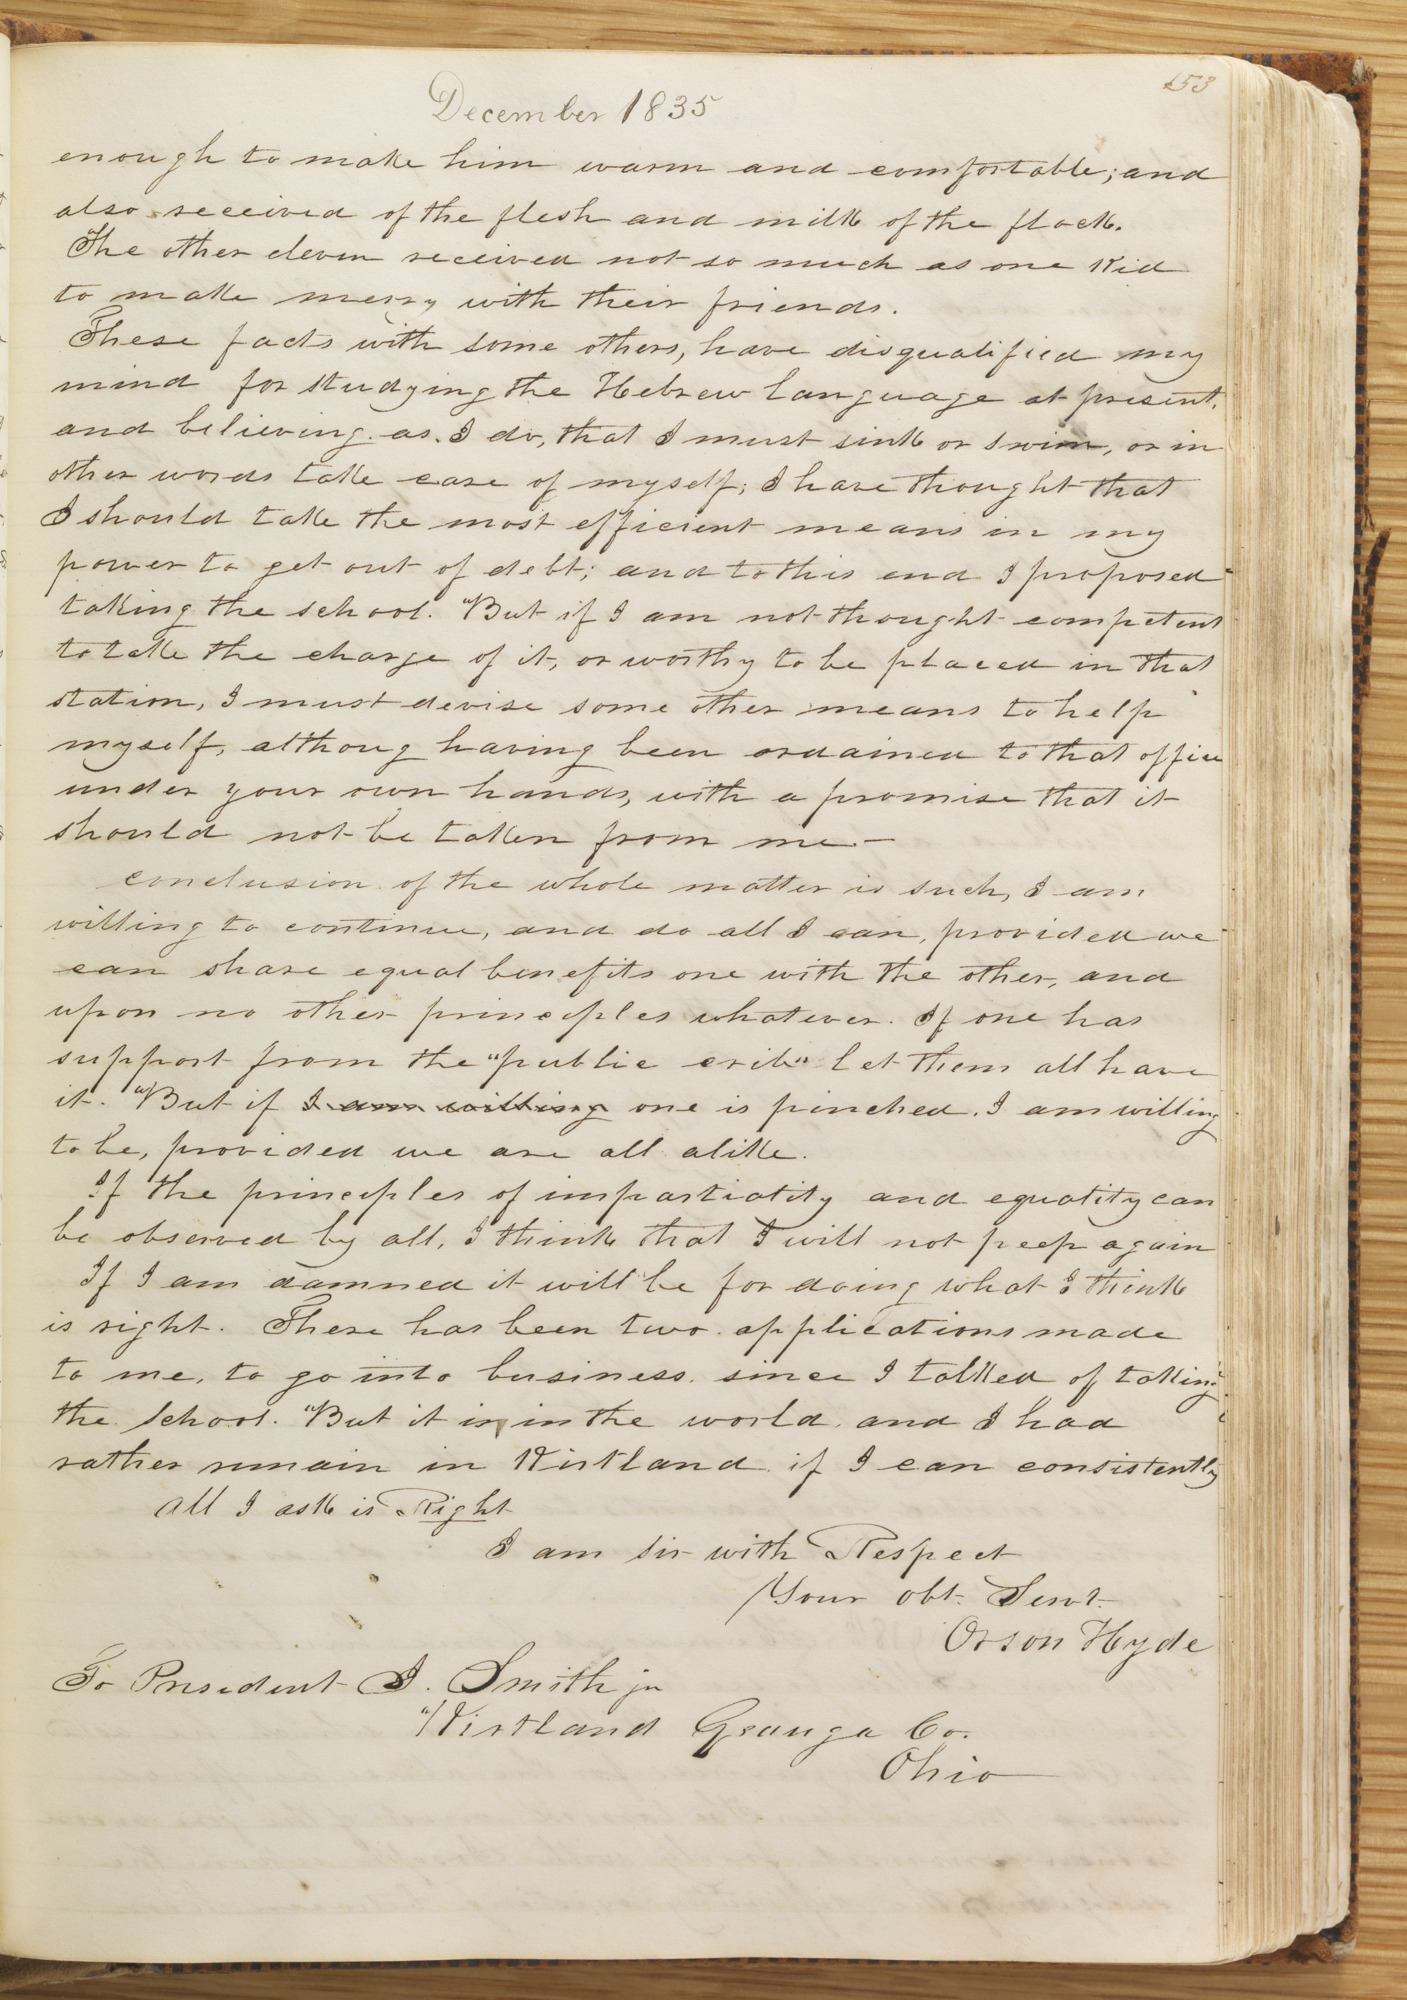 153
December 1835
enough to make him warm and comfortable; and
also received of the flesh and milk of the flock.
The other eleven received not so much as one kid
to make merry with their friends.
These facts with some others, have disqualified my
mind for studying the Hebrew Language at present,
and believing, as I do, that I must sink or swim, or in
other words take care of myself; I have thought that
I should take the most efficient means in my
power to get out of debt; and to this end I proposed
taking the school. "But if I am not thought competent
to take the charge of it, or worthy to be placed in that
station, I must devise some other means to help
myself, althoug having been ordained to that office
under your own hands, with a promise that it
should not be taken from me.—
conclusion of the whole matter is such, I am
willing to continue, and do all I can, provided we
can share equal benefits one with the other, and
upon no other principles whatever. If one has
support from the "public crib" let them all have
it. "But if I am willing one is pinched, I am willing
to be, provided we are all alike.
If the principles of impartiality and equality can
be observed by all, I think that I will not peep again
If I am damned it will be for doing what I think
is right. There has been two applications made
to me, to go into business since I talked of taking
the school. "But it is in the world, and I had
rather remain in Kirtland if I can consistently
all I ask is Right
I am sir with Respect
Your obt. Servt.
Orson Hyde
To President J. Smith jn
Kirtland Geauga Co.
Ohio